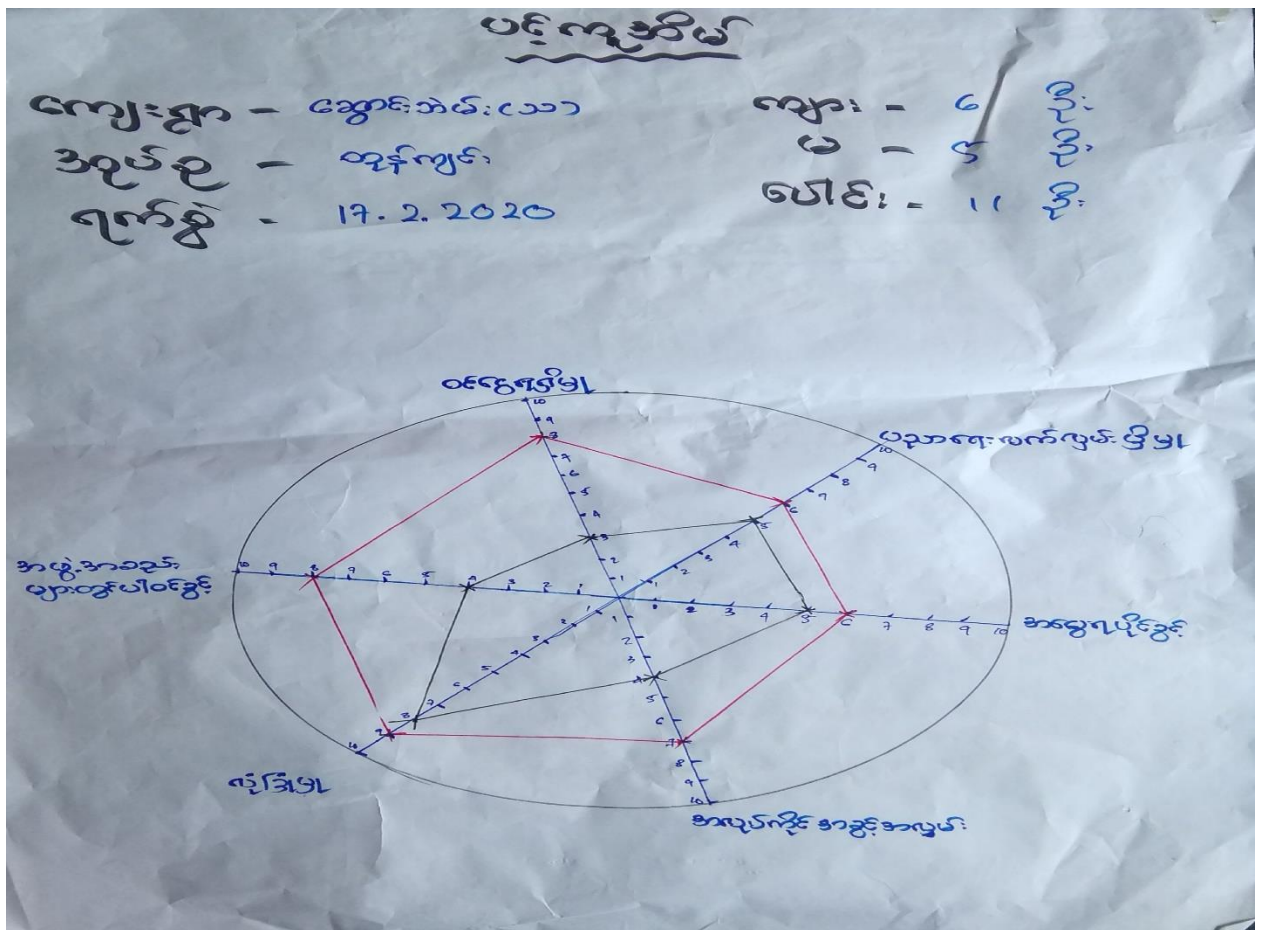 ပင့်ကူအိမ်
ကျေးရွာ - ဆွောင်းဘဲမ်း(သာ)
အုပ်စု - တုန်ကျင်း
ရက်စွဲ - 17.2.2020
ကျား - 6 ဦး
မ - 5 ဦး
ပေါင်း - 11 ဦး
ဝင်ငွေရရှိမှု
ပညာရေးလက်လှမ်းမှီမှု
အမွေရပိုင်ခွင့်
အလုပ်ကိုင်အခွင့်အလမ်း
လုံခြုံမှု
အဖွဲ့အစည်း
များတွင်ပါဝင်ခွင့်
10 9 8 7 6 5 4 3 2 1
10 9 8 7 6 5 4 3 2 1
1 2 3 4 5 6 7 8 9 10
1 2 3 4 5 6 7 8 9 10
1 2 3 4 5 6 7 8 9 10
1 2 3 4 5 6 7 8 9 10